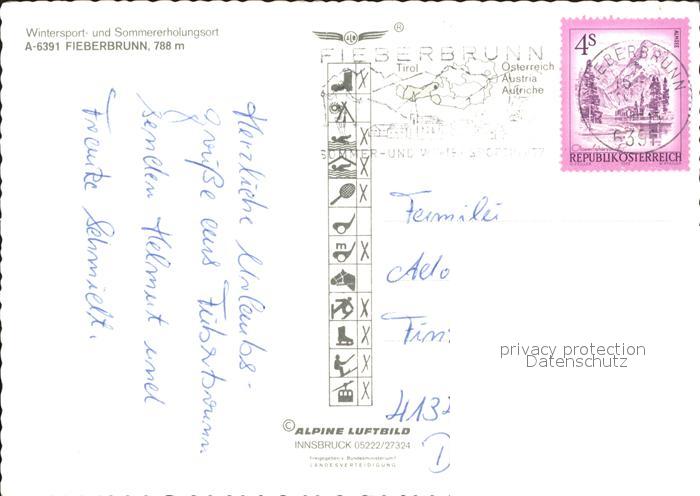 Wintersport- und Sommererholungsort
A-6391 FIEBERBRUNN, 788 m
®
FIEBERBRUNN
Tirol
Österreich
Austria
Autriche
SOMMER-UND WINTERSPORTPLATZ
4S
ALMSEE
FIEBERBRUNN
6391
REPUBLIK ÖSTERREICH
Herzliche Urlaubs-
grüße aus Fieberbrunn
senden Helmut und
Frauke Schmidt.
m
Familie
Ado
Fin
413
D
privacy protection
Datenschutz
© ALPINE LUFTBILD
INNSBRUCK 05222/27324
Freigegeben v. Bundesministerium f.
LANDESVERTEIDIGUNG